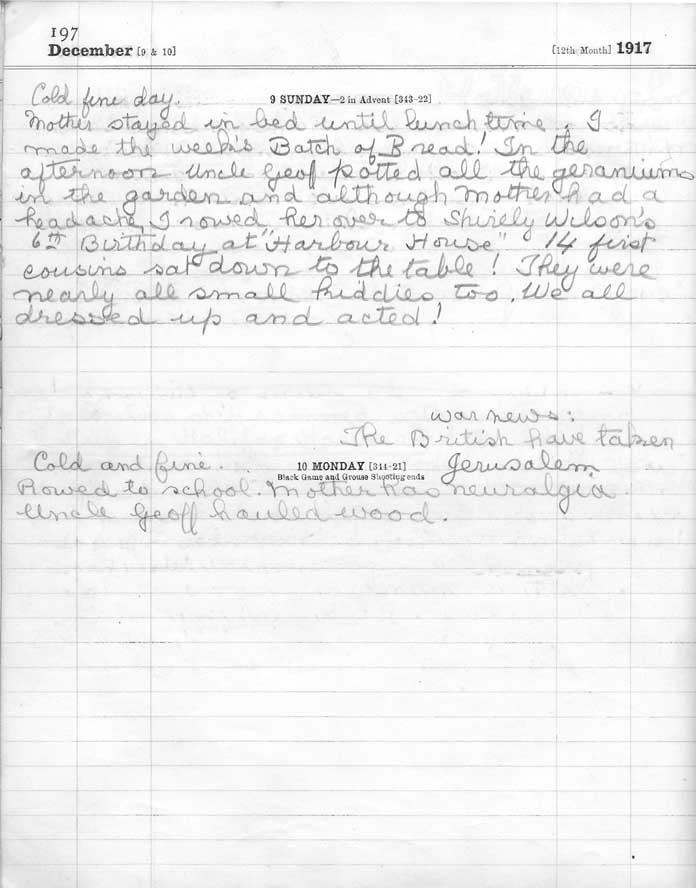 197
December [9 & 10] [12th Month] 1917
Cold fine day. 9 SUNDAY—2 in Advent [343-22]
Mother stayed in bed until lunch time. I
made the week's Batch of Bread! In the
afternoon Uncle Geoff potted all the geraniums
in the garden and although Mother had a
headache I rowed her over to Shirely Wilson's
6th Birthday at "Harbour House" 14 first
cousins sat down to the table! They were
nearly all small kiddies, too. We all
dressed up and acted!
war news:
The British have taken
Cold and fine. 10 MONDAY [344-21] Jerusalem
Black Game and Grouse Shooting ends
Rowed to school. Mother has neuralgia
Uncle Geoff hauled wood.